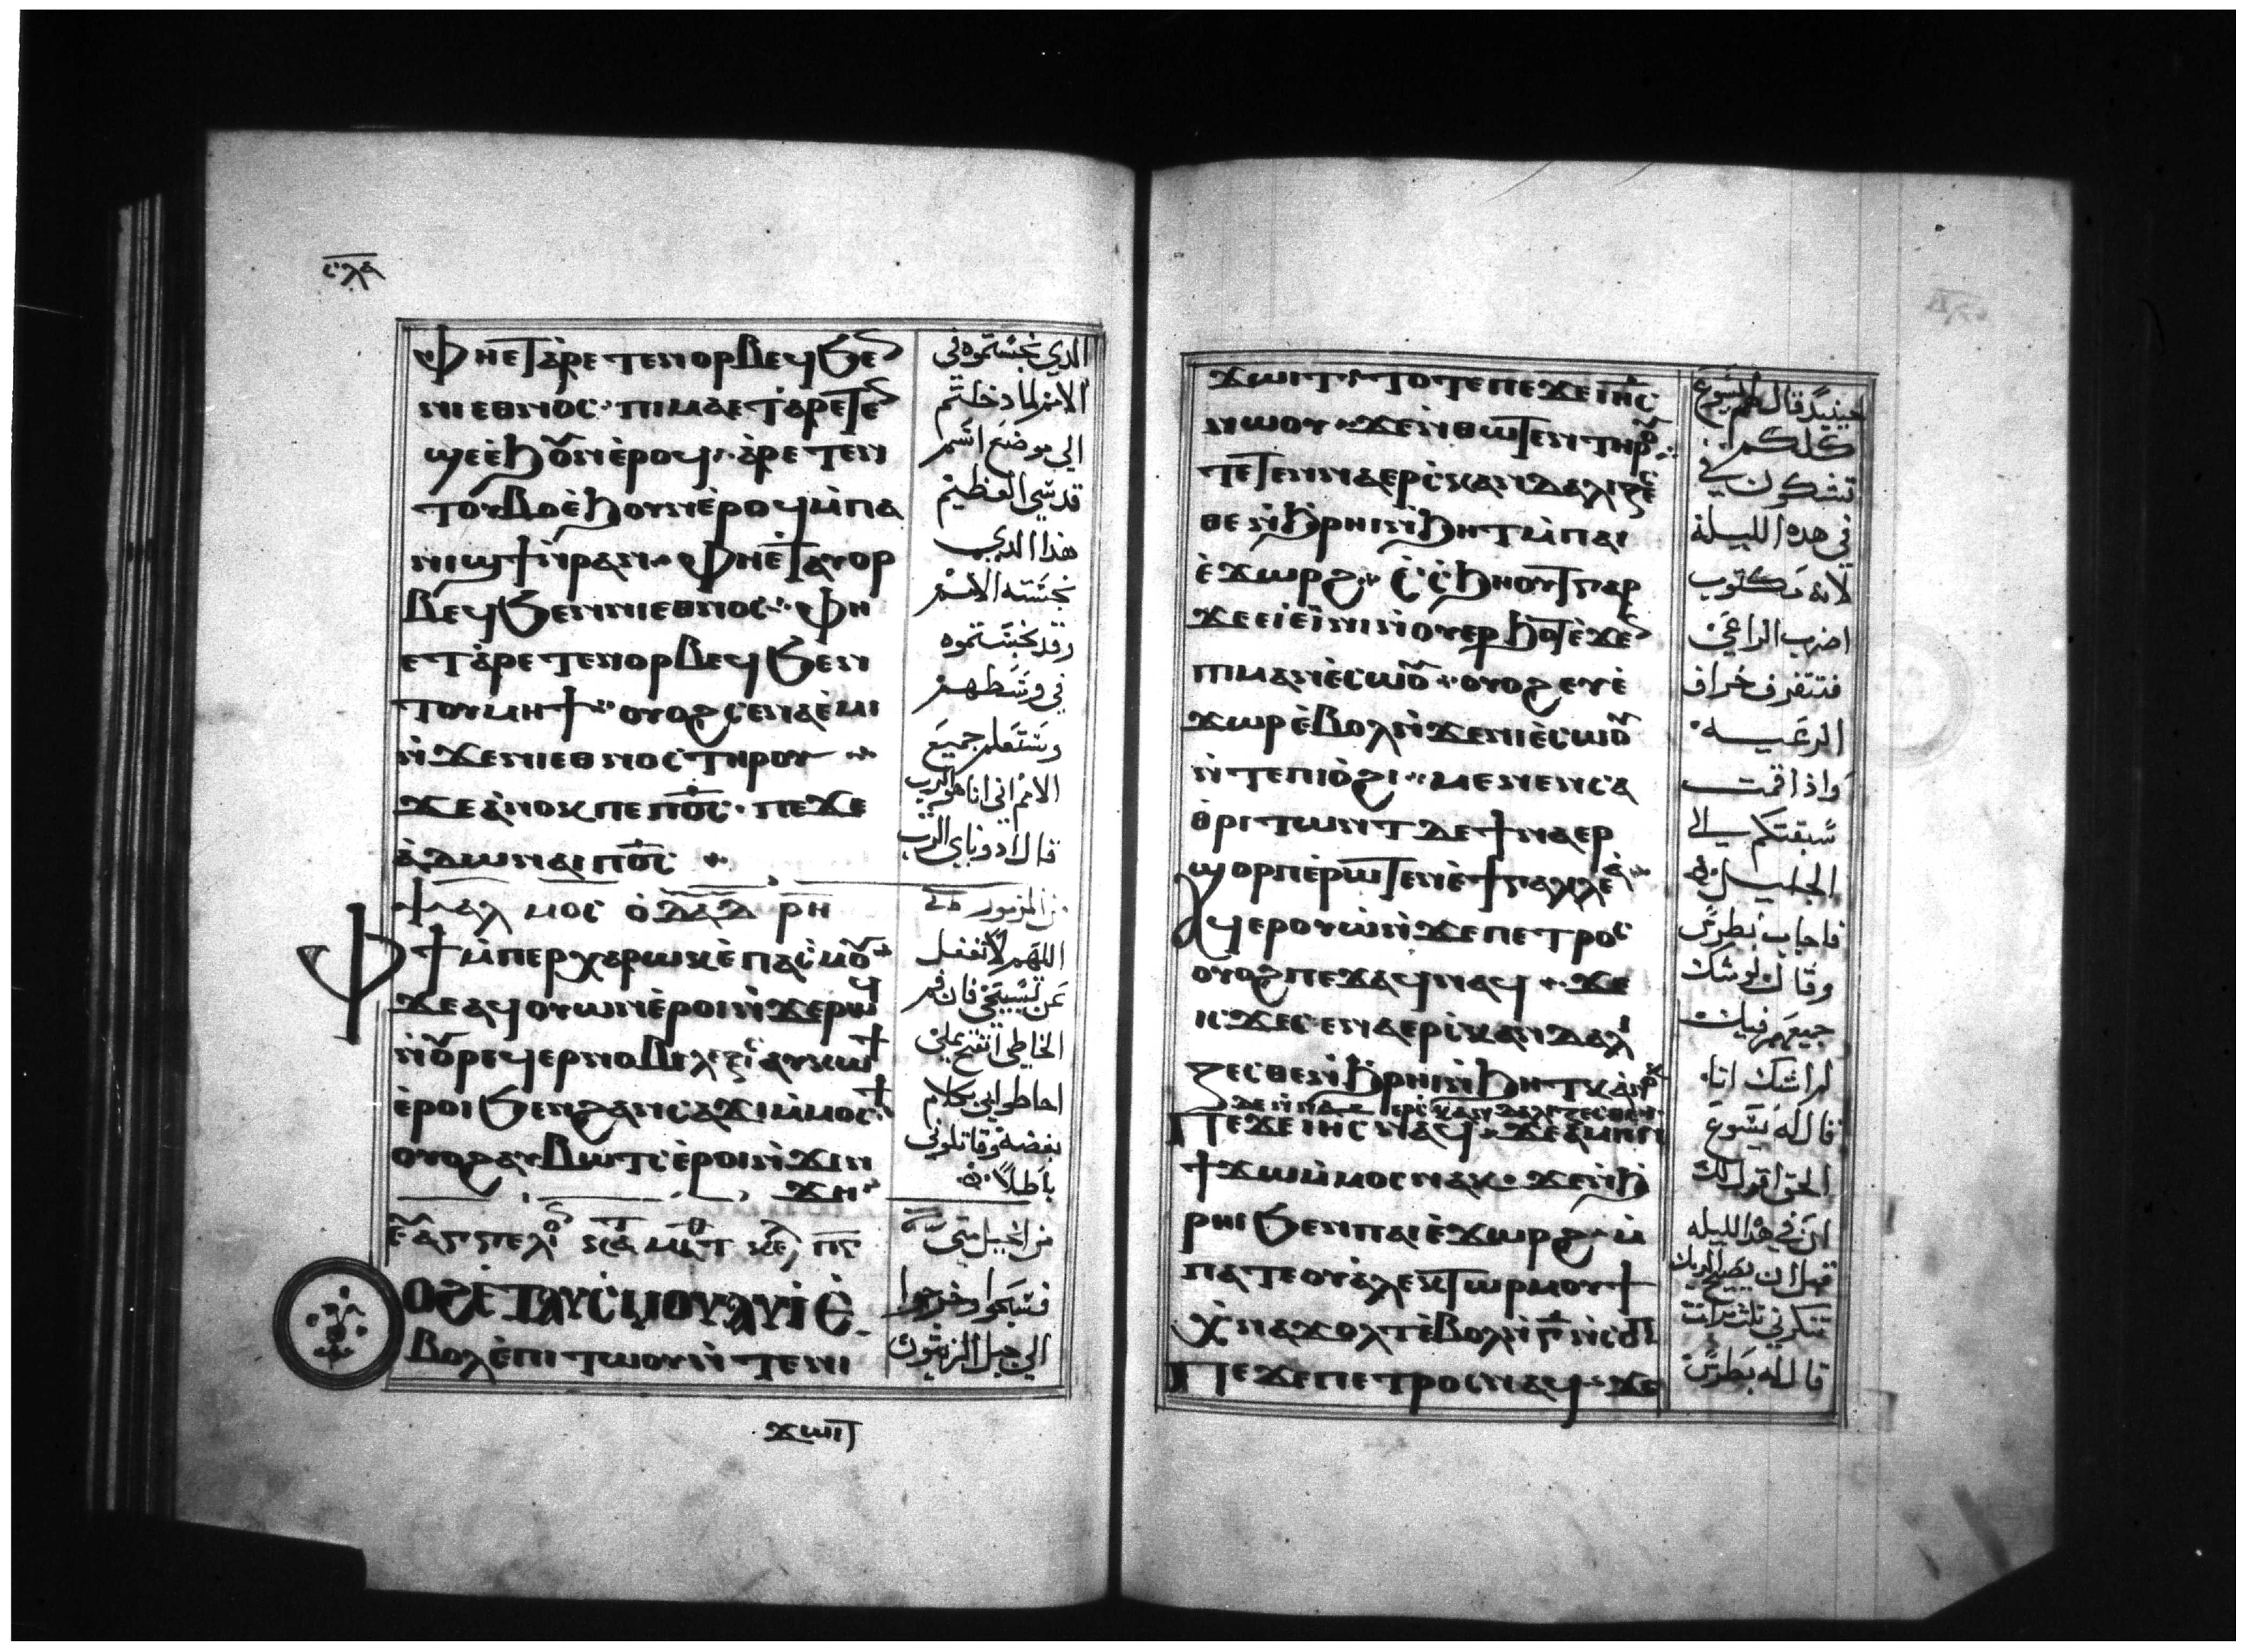 ⲥⲗⲁ
ⲫⲏⲉⲧⲁⲣⲉⲧⲉⲛⲟⲣⲃⲉϥ ϧⲉ
ⲛⲓⲉⲑⲛⲟⲥ · ⲡⲓⲙⲁ ⲉⲧⲁⲣⲉⲧⲉ
ϣⲉ ⲉϧⲟⲩⲛ ⲉⲣⲟϥ · ⲁⲣⲉⲧⲉⲛ
ⲧⲟⲩⲃⲟ ⲉϧⲟⲩⲛ ⲉⲣⲟϥ ⲙ̇ⲡⲁ
ⲛⲓϣϯ ⲛ̇ⲣⲁⲛ · ⲫⲏⲉⲧⲁⲩⲟⲣ
ⲃⲉϥ ϧⲉⲛ ⲛⲓⲉⲑⲛⲟⲥ · ⲫⲏ
ⲉⲧⲁⲣⲉⲧⲉⲛⲟⲣⲃⲉϥ ϧⲉⲛ
ⲧⲟⲩⲙⲏϯ · ⲟⲩⲟϩ ⲥⲉⲛⲁⲉ̇ⲙⲓ
ⲛ̇ϫⲉ ⲛⲓⲉⲑⲛⲟⲥ ⲧⲏⲣⲟⲩ
ϫⲉ ⲁ̇ⲛⲟⲕ ⲡⲉ ⲡⲟ̅ⲥ̅ · ⲡⲉϫⲉ
ⲁ̇ⲇⲱⲛⲁⲓ ⲡⲟ̅ⲥ̅
ⲯⲁⲗⲙⲟⲥ ⲟ̇ ⲇⲁⲇ ⲣⲏ
ⲫϯ ⲙ̇ⲡⲉⲣⲭⲁⲣⲱⲕ ⲉ̇ⲡⲁⲥⲙⲟⲩ
ϫⲉ ⲁϥⲟⲩⲱⲛ ⲉ̇ⲣⲟⲓ ⲛ̇ϫⲉ ⲣⲱϥ
ⲛ̇ⲟⲩⲣⲉϥⲉⲣⲛⲟⲃⲓ ⲁⲩⲕⲱϯ
ⲉ̇ⲣⲟⲓ ϧⲉⲛ ϩⲁⲛⲥⲁϫⲓ ⲙ̇ⲙⲟⲥϯ
ⲟⲩⲟϩ ⲁⲩⲃⲱⲧⲥ ⲉ̇ⲣⲟⲓ ⲛ̇ϫⲓⲛ
ϫⲏ
ⲉⲩⲁⲅⲅⲉⲗⲓⲟ ⲕⲁ ⲙⲁⲧ ⲕⲉ
ⲟϩ ⲉⲧⲁⲩⲥⲙⲟⲩ ⲁⲩⲓ̇ ⲉ̇
ⲃⲟⲗ ⲉ̇ⲡⲓⲧⲱⲟⲩ ⲛ̇ⲧⲉ ⲛⲓ
ϫⲱⲓⲧ
الدي نجستموه في
الامم لما دخلتم
الي موضع اسم
قدسي العظيم
هذا الدي
نجسته الامم
وقد نجستموه
في وسطهم
وستعلم جميع
الامم اني انا هو الرب
قال ادوناي الرب
من المزمور
اللهم لا تغفل
عن تسبيحي فان فم
الخاطي انفتح علي
احاطوا بي بكلام
بغضة وقاتلوني
باطلا
من انجيل متي
فسبحوا وخرجوا
الي جبل الزيتون
ϫⲱⲓⲧ · ⲧⲟⲧⲉ ⲡⲉϫⲉ ⲓⲏ̅ⲥ̅
ⲛⲱⲟⲩ · ϫⲉ ⲛ̇ⲑⲱⲧⲉⲛ ⲧⲏⲣⲟⲩ
ⲧⲉⲧⲉⲛⲛⲁⲉⲣⲥⲕⲁⲛⲇⲁⲗⲓⲍⲉⲥ
ⲑⲉ ⲛ̇ϧⲣⲏⲓ ⲛ̇ϧⲏⲧ ⲙ̇ⲡⲁⲓ
ⲉ̇ϫⲱⲣϩ · ⲥ̇ⲥ̇ϧⲏⲟⲩⲧ ⲅⲁⲣ
ϫⲉ ⲉⲓⲉ̇ⲓⲛⲓ ⲛ̇ⲟⲩⲉⲣϧⲟⲧ ⲉ̇ϫⲉ
ⲡⲓⲙⲁⲛⲉ̇ⲥⲱⲟⲩ · ⲟⲩⲟϩ ⲉⲩⲉ̇
ϫⲱⲣ ⲉ̇ⲃⲟⲗ ⲛ̇ϫⲉ ⲛⲓⲉ̇ⲥⲱⲟⲩ
ⲛ̇ⲧⲉ ⲡⲓⲟ̇ϩⲓ · ⲙⲉⲛⲉⲛⲥⲁ
ⲑⲣⲓⲧⲱⲛⲧ ⲇⲉ ϯⲛⲁⲉⲣ
ϣⲟⲣⲡ ⲉ̇ⲣⲱⲧⲉⲛ ⲉ̇ϯⲅⲁⲗⲓⲗⲉⲁ
ⲁϥⲉⲣⲟⲩⲱ̇ ⲛ̇ϫⲉ ⲡⲉⲧⲣⲟⲥ
ⲟⲩⲟϩ ⲡⲉϫⲁϥ ⲛⲁϥ · ϫⲉ
ⲓⲥϫⲉ ⲥⲉⲛⲁⲉⲣⲥⲕⲁⲛⲇⲁⲗⲓ
ⲍⲉⲥⲑⲉ ⲛ̇ϧⲣⲏⲓ ⲛ̇ϧⲏⲧⲕ
ⲡⲉϫⲉ ⲓⲏⲥ ⲛⲁϥ · ϫⲉ ⲁⲙⲏⲛ
ϯϫⲱ ⲙ̇ⲙⲟⲥ ⲛⲁⲕ · ϫⲉ ⲛ̇ϧ
ⲣⲏⲓ ϧⲉⲛ ⲡⲁⲓⲉ̇ϫⲱⲣϩ · ⲙ̇
ⲡⲁⲧⲉ ⲟⲩⲁ̇ⲗⲉⲕⲧⲱⲣ ⲙⲟⲩϯ
ⲭ̇ⲛⲁϫⲟⲗⲧ ⲉ̇ⲃⲟⲗ ⲛ̇ⲅ̅ ⲛ̇ⲥⲟⲡ
ⲡⲉϫⲉ ⲡⲉⲧⲣⲟⲥ ⲛⲁϥ · ϫⲉ
حينيد قال لهم يسوع
كلكم
تشكون في
في هده الليلة
لانه مكتوب
اضرب الراعي
فتتفرق خراف
الرعيه
واذا قمت
سبقتكم الي
الجليل
فاجاب بطرس
وقال لو شك
جميعهم فيك
لم اشك انا
قال له يسوع
الحق اقول لك
ان في هده الليله
قبل ان يصيح الديك
تنكرني تلت مرات
قال له بطرس